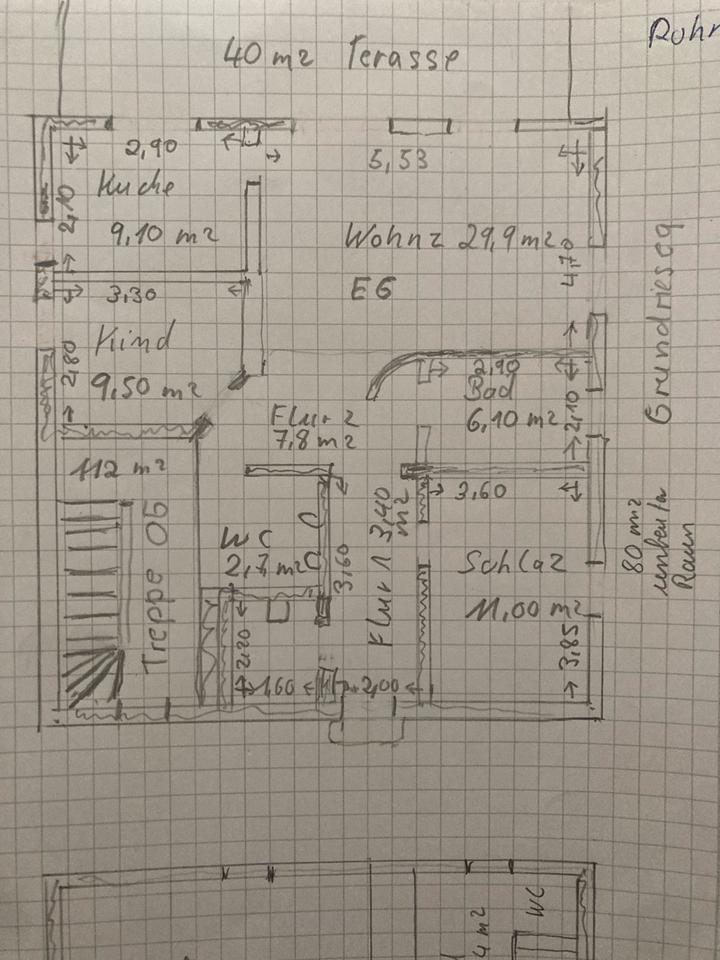 Rohr
40 m2 Terasse
2,90
5,53
Kuche
2,10
9,10 m2
Wohnz 29,9 m2
4,70
3,30
E6
Kind
2,80
9,50 m2
2,90
Bad
6,10 m2
2,10
Flur 2
7,8 m2
112 m2
3,60
WC
2,7 m2
3,60
Flur 1 3,40
m2
Treppe OG
Schlaz
11,00 m2
3,85
2,20
1,60
2,00
80 m2
Raum
WC
4 m2